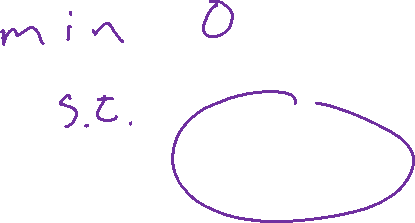 min 0
s.t.